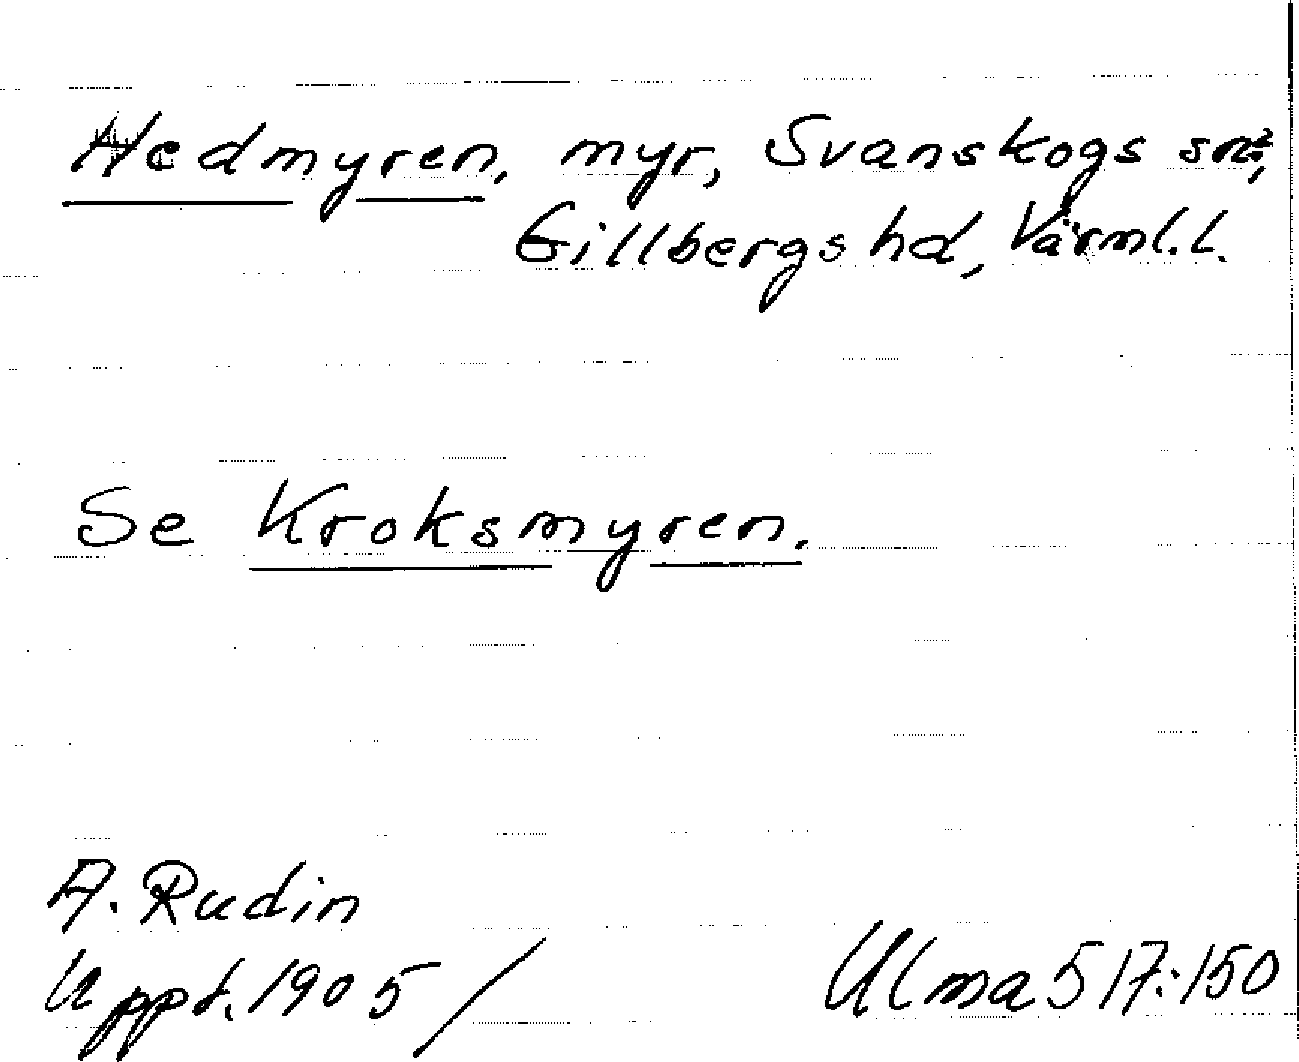 Hedmyren, myr, Svanskogs sn,
Gillbergs hd, Värml. l.
Se Kroksmyren.
A. Rudin
Uppt. 1905 /
Ulma 517:150